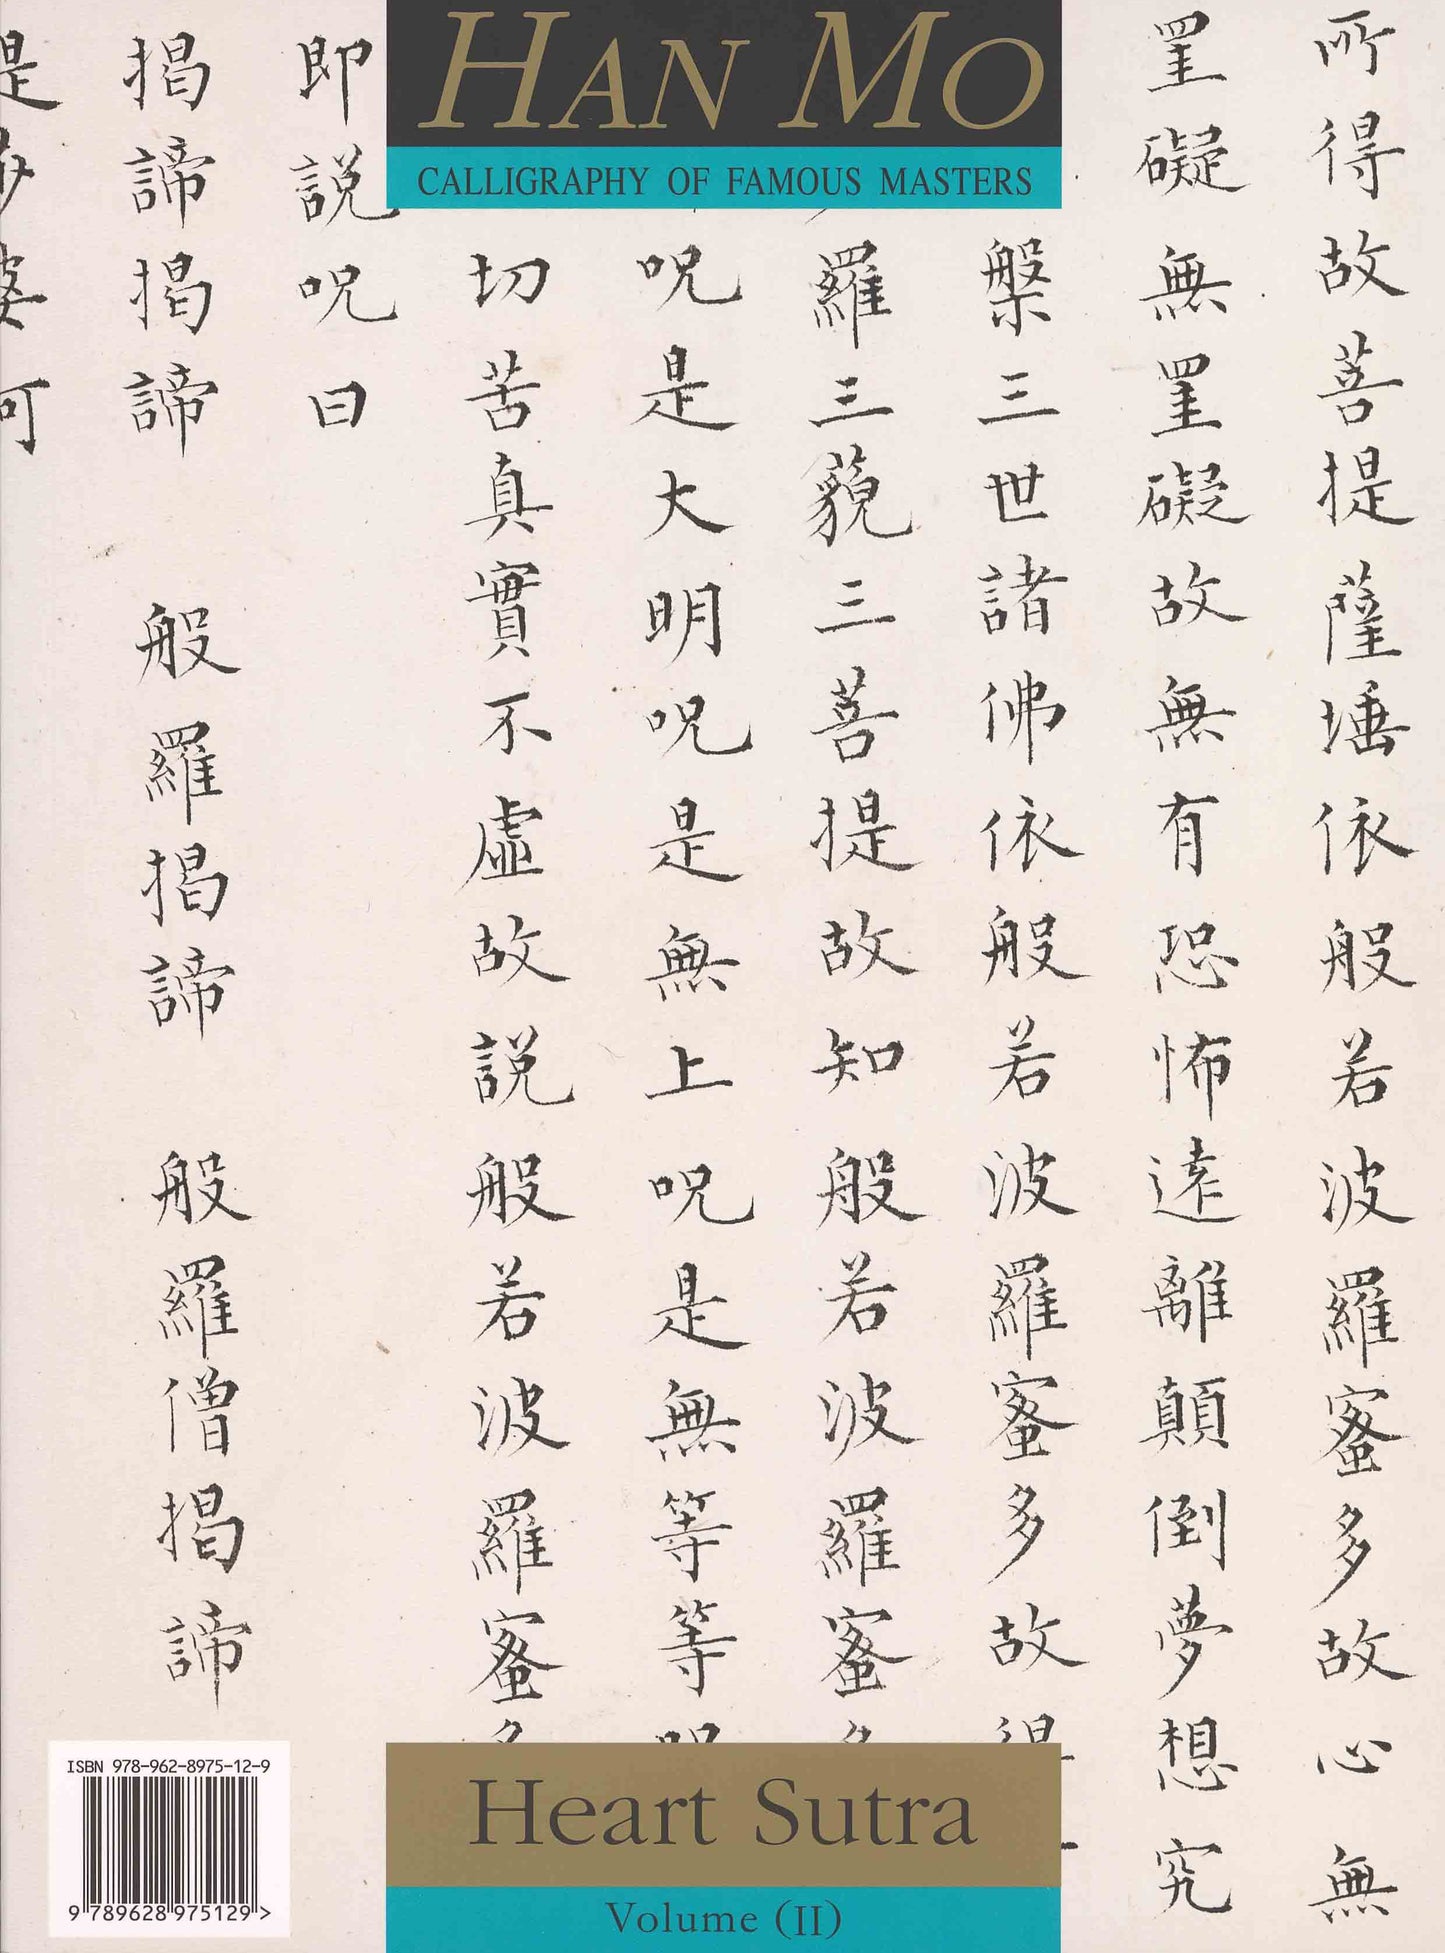 HAN MO
CALLIGRAPHY OF FAMOUS MASTERS
所得故菩提薩埵依般若波羅蜜多故心無
罣礙無罣礙故無有恐怖遠離顛倒夢想究
槃三世諸佛依般若波羅蜜多故
羅三藐三菩提故知般若波羅蜜
呪是大明呪是無上呪是無等等
切苦真實不虛故說般若波羅蜜
即說呪曰
揭諦揭諦 般羅揭諦 般羅僧揭諦
Heart Sutra
Volume (II)
ISBN 978-962-8975-12-9
9 789628 975129 >